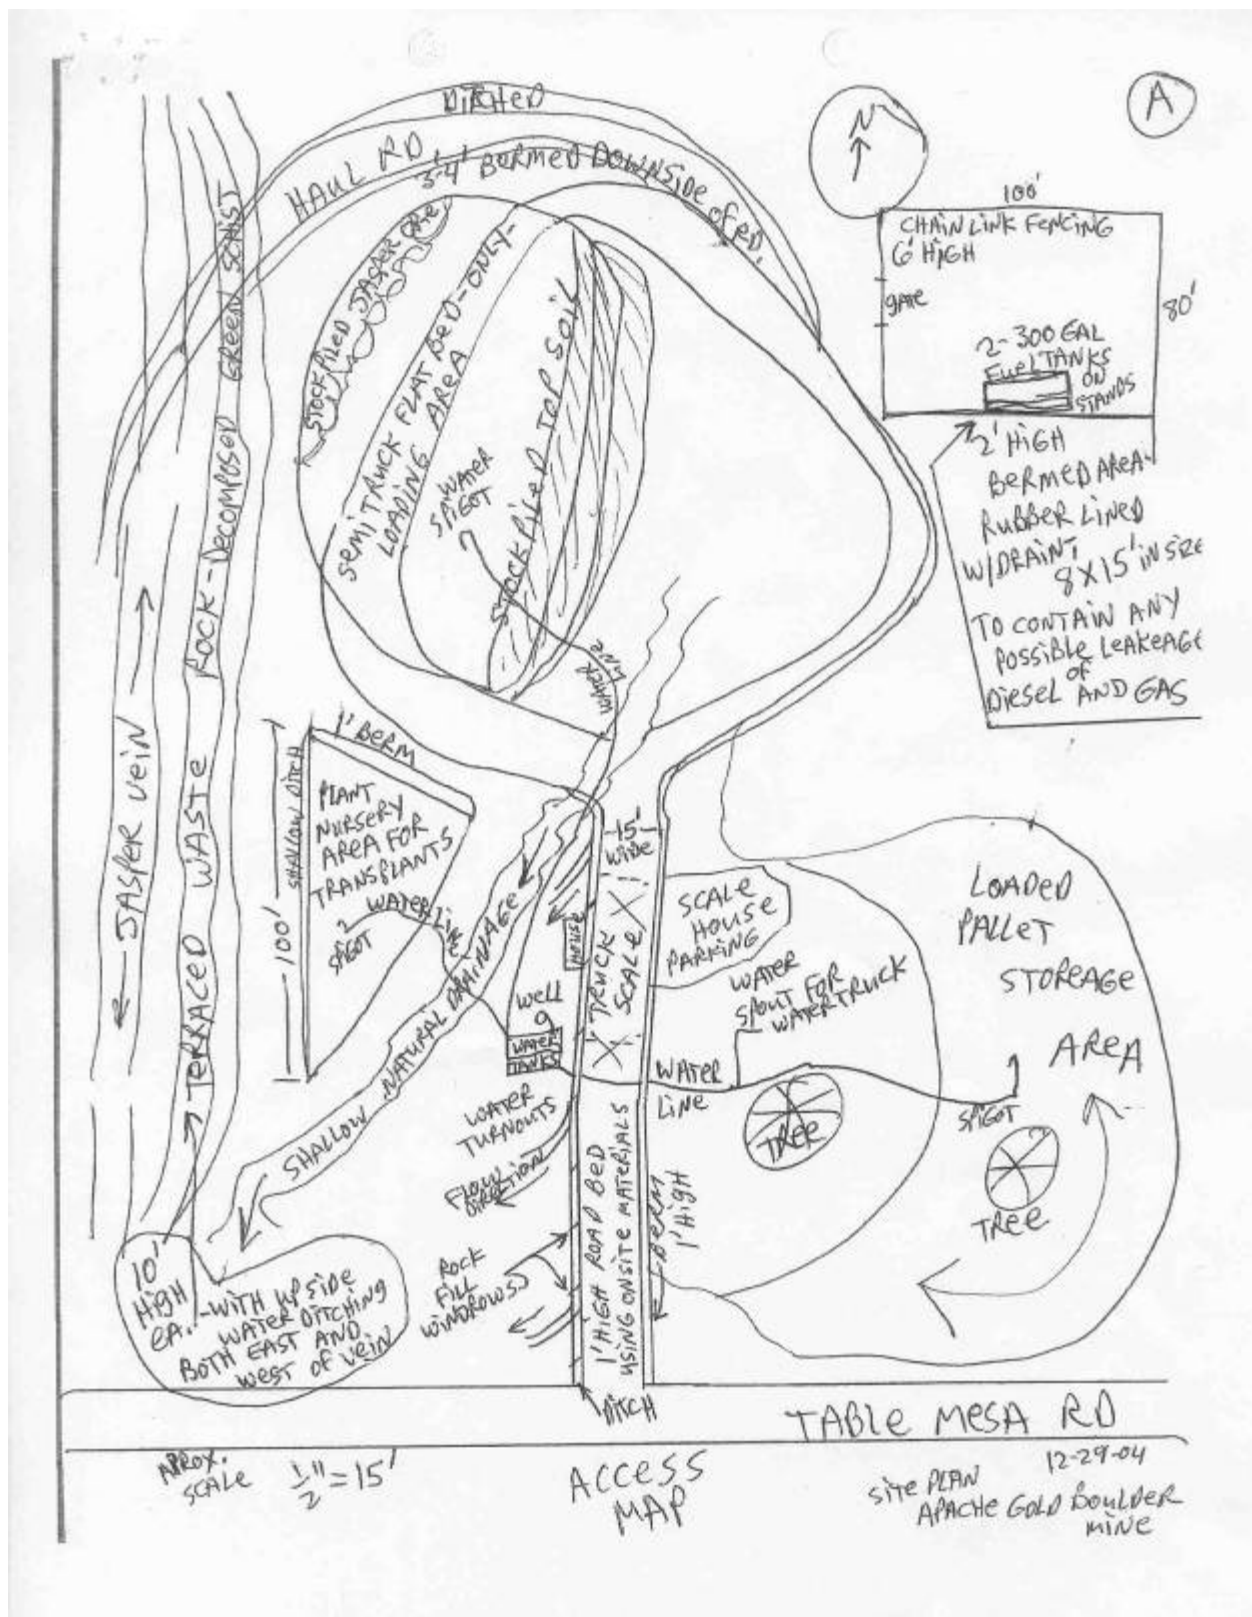 A
N
DITCHED
HAUL RD.
3-4' BERMED DOWNSIDE OF RD.
100'
CHAIN LINK FENCING
6' HIGH
GATE
80'
2-300 GAL
FUEL TANKS
ON
STANDS
2' HIGH
BERMED AREA
RUBBER LINED
W/DRAIN,
8X15' IN SIZE
TO CONTAIN ANY
POSSIBLE LEAKEAGE
OF
DIESEL AND GAS
STOCKPILED JASPER ORE
SEMI TRUCK FLAT BED-ONLY-
LOADING AREA
WATER
SPIGOT
STOCKPILED TOP SOIL
WATER
LINE
JASPER VEIN
TERRACED WASTE ROCK-DECOMPOSED GREEN SCHIST
1' BERM
SHALLOW DITCH
100'
PLANT
NURSERY
AREA FOR
TRANSPLANTS
WATERLINE
SPIGOT
SHALLOW NATURAL DRAINAGE
15'
WIDE
HOUSE
TRUCK
SCALE
SCALE
HOUSE
PARKING
WELL
WATER
TANKS
WATER
SPOUT FOR
WATERTRUCK
WATER
LINE
LOADED
PALLET
STOREAGE
AREA
SPIGOT
TREE
TREE
WATER
TURNOUTS
FLOW
DIRECTION
ROCK
FILL
WINDROWS
1' HIGH ROAD BED
USING ONSITE MATERIALS
BERM
1' HIGH
10'
HIGH
EA.
-WITH UPSIDE
WATER DITCHING
BOTH EAST AND
WEST OF VEIN
DITCH
TABLE MESA RD
APROX.
SCALE
1/2" = 15'
ACCESS
MAP
12-29-04
SITE PLAN
APACHE GOLD BOULDER
MINE